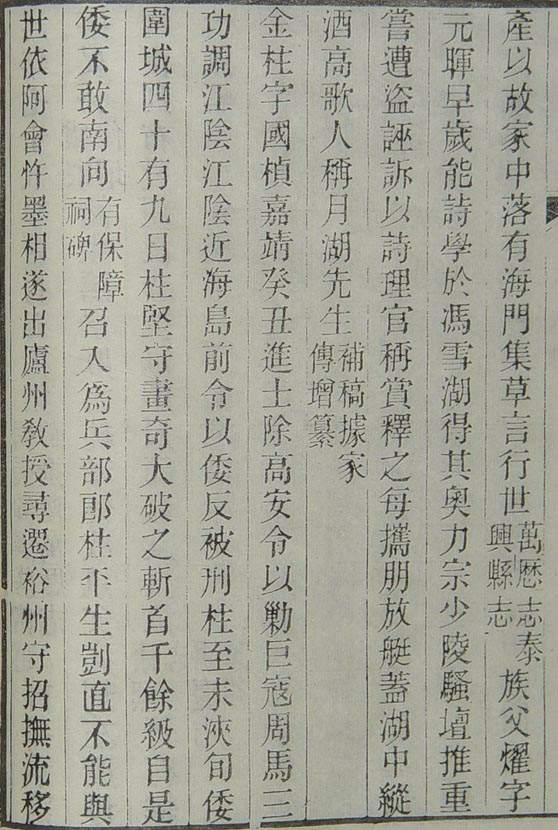 產以故家中落有海門集草言行世萬歷志泰興縣志族父燿字
元暉早歲能詩學於馮雪湖得其奧力宗少陵騷壇推重
嘗遭盜誣訴以詩理官稱賞釋之每攜朋放艇蓋湖中縱
酒高歌人稱月湖先生補稿據家傳增纂
金柱字國楨嘉靖癸丑進士除高安令以勦巨寇周馬三
功調江陰江陰近海島前令以倭反被刑柱至未浹旬倭
圍城四十有九日柱堅守畫奇大破之斬首千餘級自是
倭不敢南向有保障祠碑召入為兵部郎柱平生剴直不能與
世依阿會忤墨相遂出廬州教授尋遷裕州守招撫流移